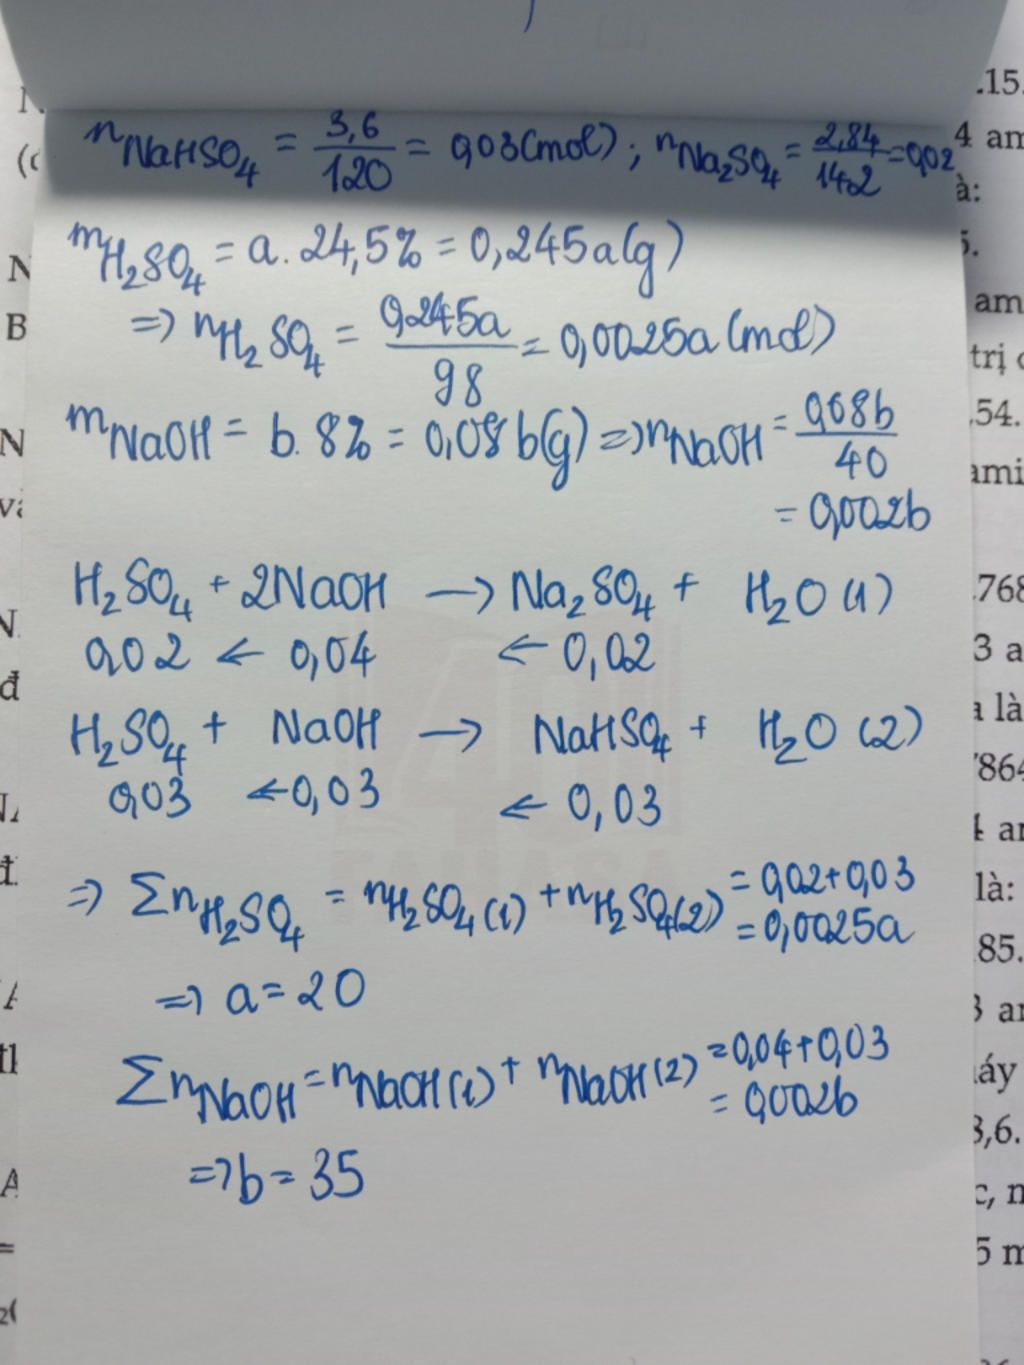 nNaHSO4 = 3,6/120 = 0,03(mol) ; nNa2SO4 = 2,84/142 = 0,02
mH2SO4 = a. 24,5% = 0,245a(g)
=> nH2SO4 = 0,245a/98 = 0,0025a (mol)
mNaOH = b. 8% = 0,08b(g) => nNaOH = 0,08b/40
= 0,002b
H2SO4 + 2NaOH → Na2SO4 + H2O (1)
0,02 ← 0,04 ← 0,02
H2SO4 + NaOH → NaHSO4 + H2O (2)
0,03 ← 0,03 ← 0,03
=> ΣnH2SO4 = nH2SO4(1) + nH2SO4(2) = 0,02+0,03
= 0,0025a
=> a = 20
ΣnNaOH = nNaOH(1) + nNaOH(2) = 0,04+0,03
= 0,002b
=> b = 35
.15.
4 am
à:
5.
am
trị
.54.
ami
.768
3 a
a là
7864
4 an
là:
85.
3 an
áy
3,6.
c, n
5 m
N
B
N
đ
A
=